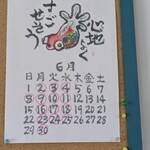 心地
よく
すごせそう
6月
日 月 火 水 木 金 土
1 2 3 4 5 6 7
8 9 10 11 12 13 14
15 16 17 18 19 20 21
22 23 24 25 26 27 28
29 30